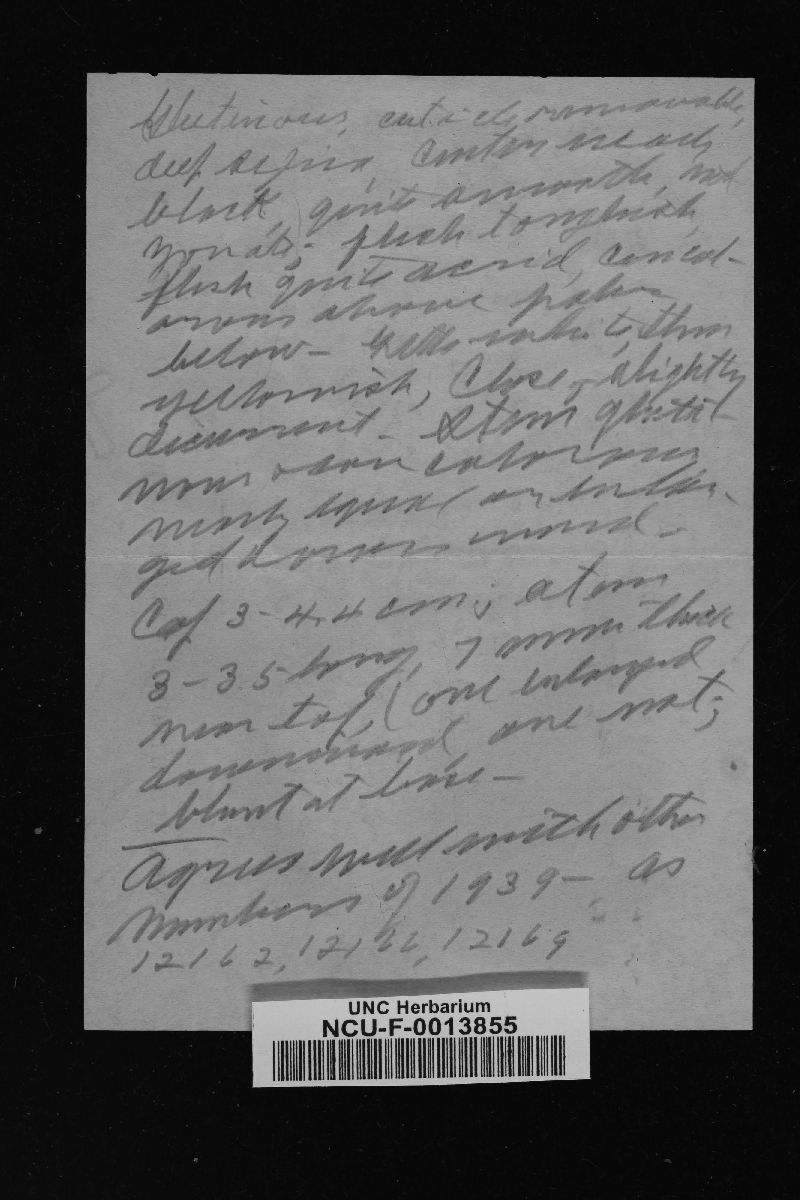 Glutinous, cuticle removable,
deep sepia, center nearly
black, quite smooth, not
zonate; flesh toughish,
flesh quite acrid, concol-
orous above paler
below - Gills white, then
yellowish, close, slightly
decurrent - Stem gluti-
nous concolorous
nearly equal or enlar-
ged downward -
Cap 3-4.4 cm; stem
3-3.5 long, 7 mm thick
near top, (one enlarged
downward, one not;
blunt at base -
Agrees well with other
numbers of 1939 - as
12162, 12166, 12169
UNC Herbarium
NCU-F-0013855